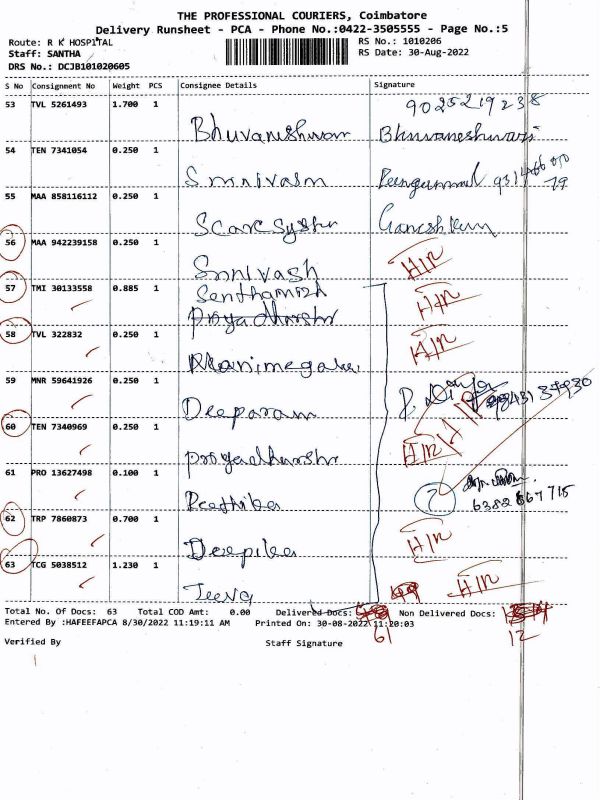 THE PROFESSIONAL COURIERS, Coimbatore
Delivery Runsheet - PCA - Phone No.:0422-3505555 - Page No.:5
Route: R K HOSPITAL
RS No.: 1010206
Staff: SANTHA
RS Date: 30-Aug-2022
DRS No.: DCJB101020605
S No Consignment No Weight PCS Consignee Details Signature
9025219238
53 TVL 5261493 1.700 1
Bhuvaneshwari Bhuvaneshwari
54 TEN 7341054 0.250 1
Srinivasan
55 MAA 858116112 0.250 1
Scarc System Ganesh Kum
56 MAA 942239158 0.250 1
Srinivash H/R
57 TMI 30133558 0.885 1
Senthamizh H/R
58 TVL 322832 0.250 1
Manimegalai H/R
59 MNR 59641926 0.250 1
Deeparam
60 TEN 7340969 0.250 1
Priyadharshi H/R
61 PRO 13627498 0.100 1
Reethika ?
6382867715
62 TRP 7860873 0.700 1
Deepika H/R
63 TCG 5038512 1.230 1
Jeeva H/R
Total No. Of Docs: 63 Total COD Amt: 0.00 Delivered Docs: Non Delivered Docs:
61 12
Entered By :HAFEEFAPCA 8/30/2022 11:19:11 AM Printed On: 30-08-2022 11:20:03
Verified By Staff Signature